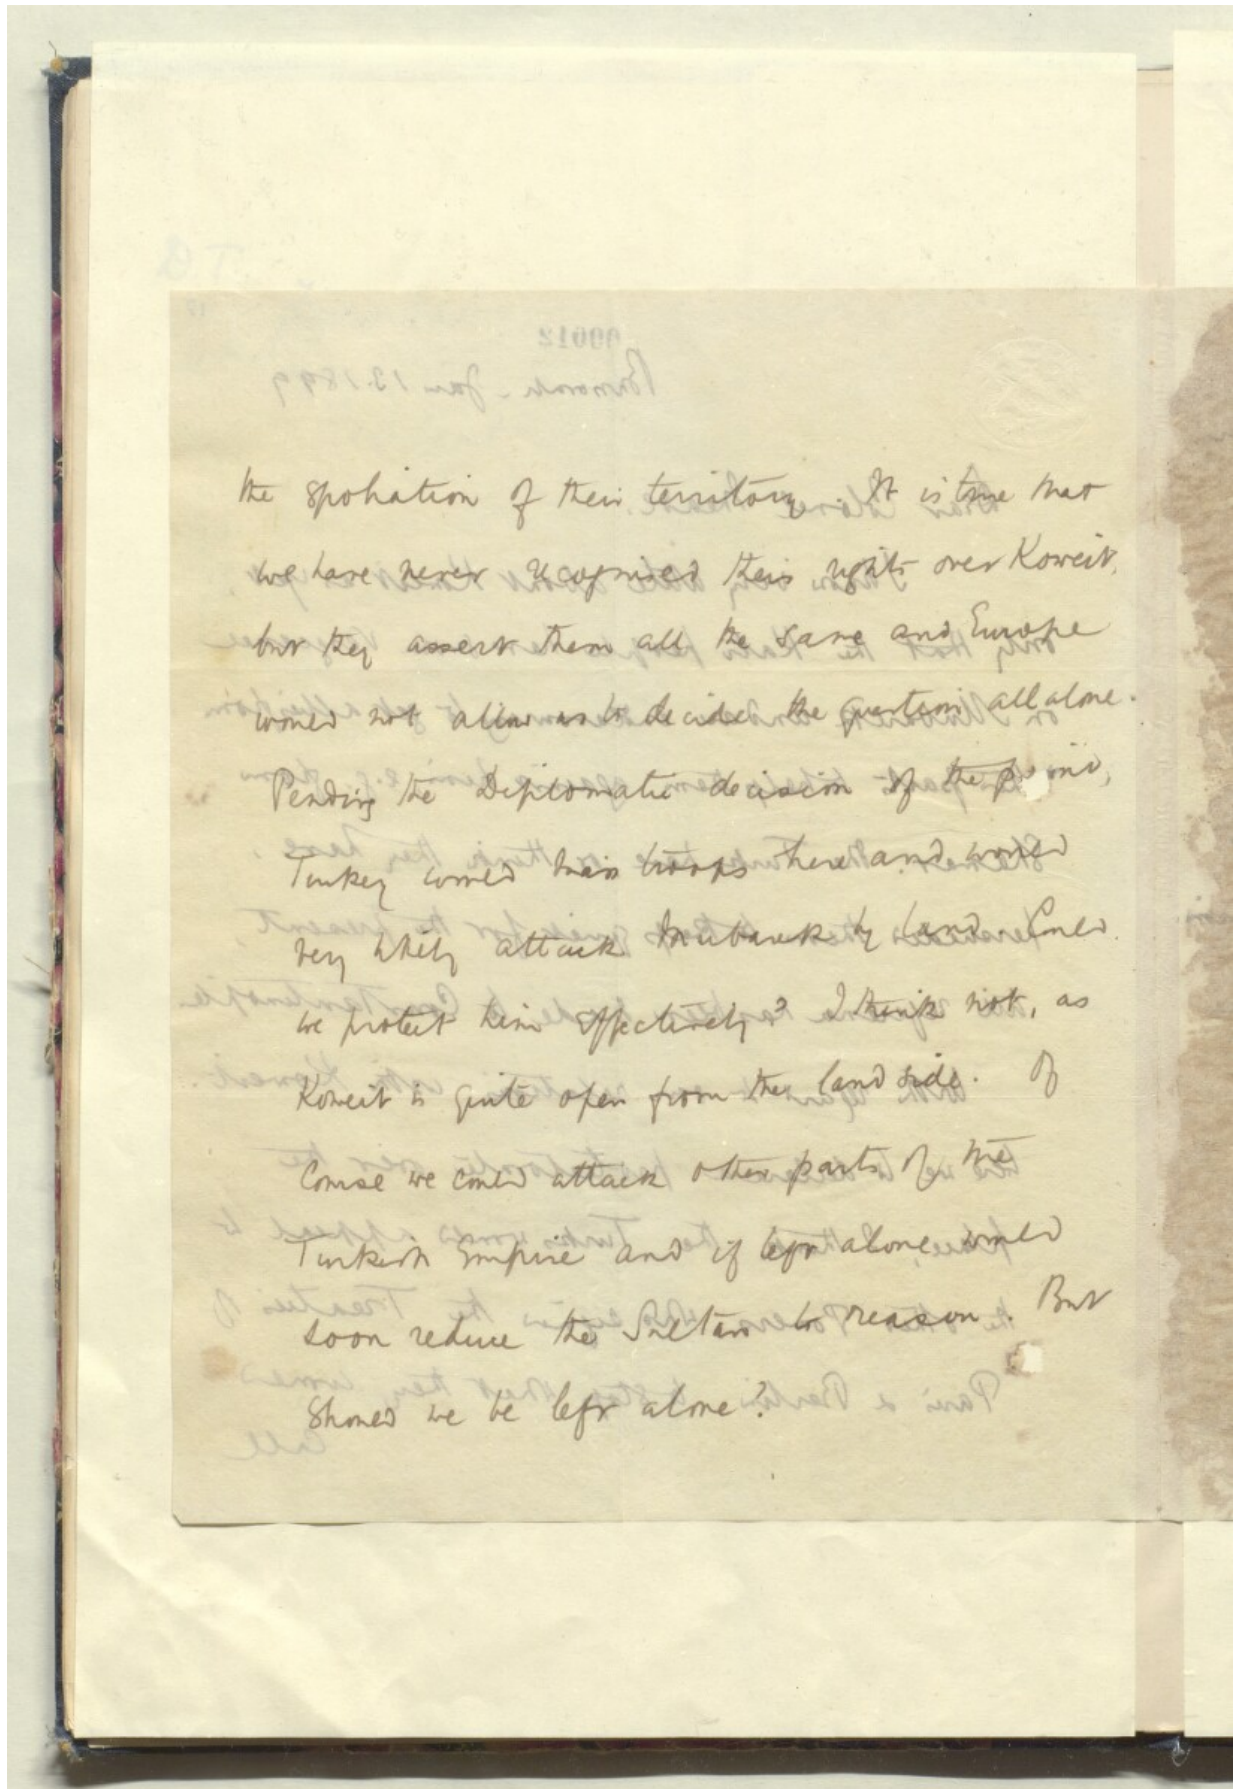 the spoliation of their territory. It is true that
we have never recognised their rights over Koweit,
but they assert them all the same and Europe
would not allow us to decide the question all alone.
Pending the Diplomatic decision of the point,
Turkey would mass troops there and would
very likely attack Mubarak by land. Could
we protect him effectively? I think not, as
Koweit is quite open from the land side. Of
Course we could attack other parts of the
Turkish Empire and if left alone, would
soon reduce the Sultan to reason. But
Should we be left alone?